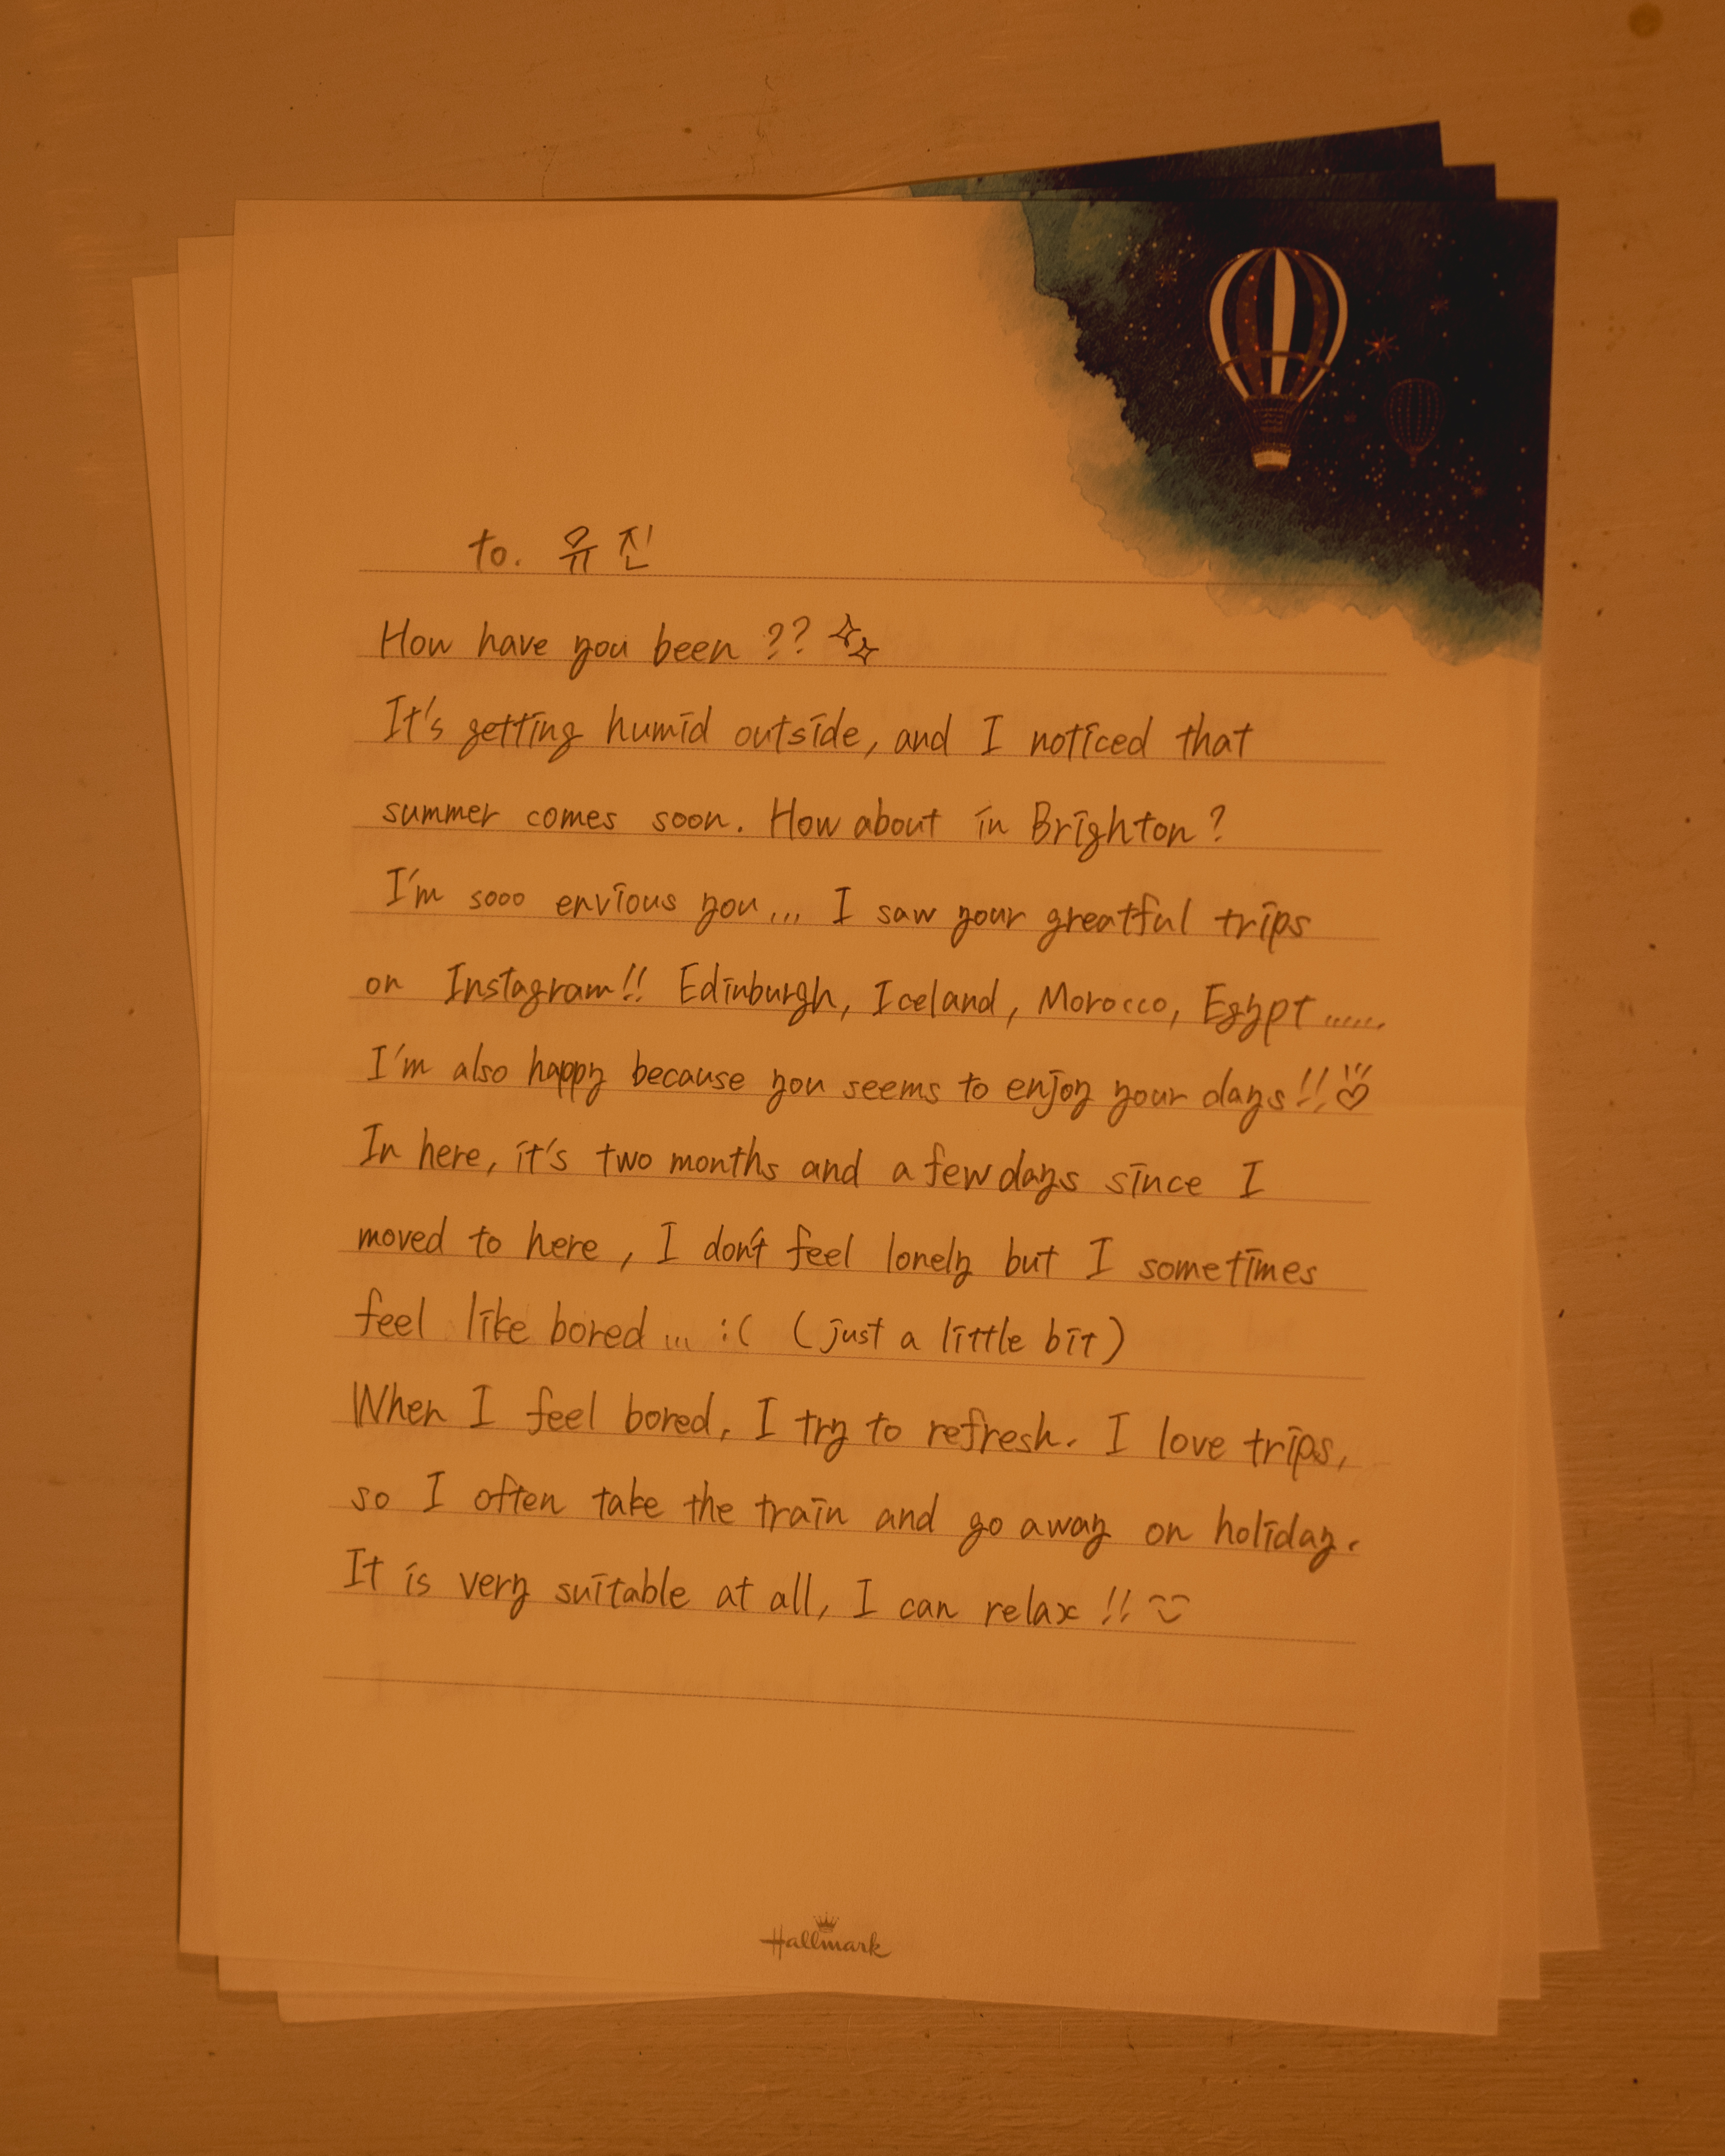 to. 유진
How have you been ??
It's getting humid outside, and I noticed that
summer comes soon. How about in Brighton ?
I'm sooo envious you... I saw your greatful trips
on Instagram!! Edinburgh, Iceland, Morocco, Egypt ......
I'm also happy because you seems to enjoy your days!!
In here, it's two months and a few days since I
moved to here, I don't feel lonely but I sometimes
feel like bored ... :( (just a little bit)
When I feel bored, I try to refresh. I love trips,
so I often take the train and go away on holiday.
It is very suitable at all, I can relax !!
Hallmark